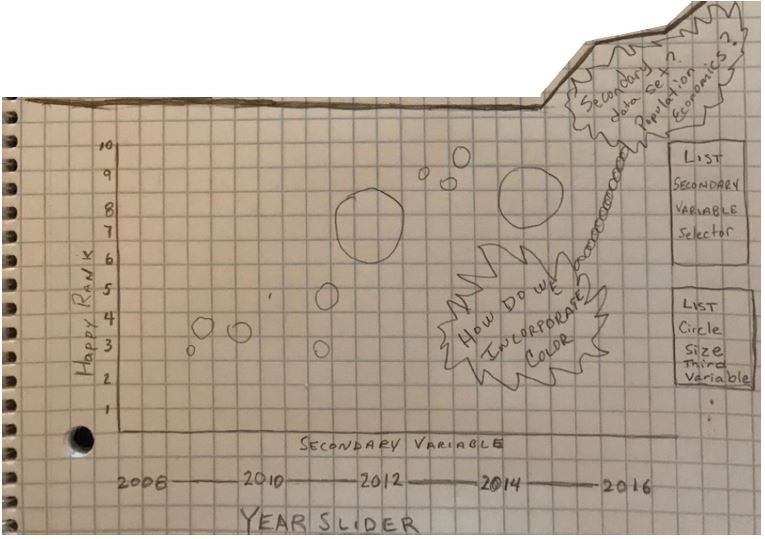 Secondary
data set?
Population
Economics?
10
9
8
7
6
5
4
3
2
1
HAPPY RANK
HOW DO WE
INCORPORATE
COLOR
LIST
SECONDARY
VARIABLE
Selector
LIST
Circle
Size
Third
Variable
SECONDARY VARIABLE
2008 2010 2012 2014 2016
YEAR SLIDER